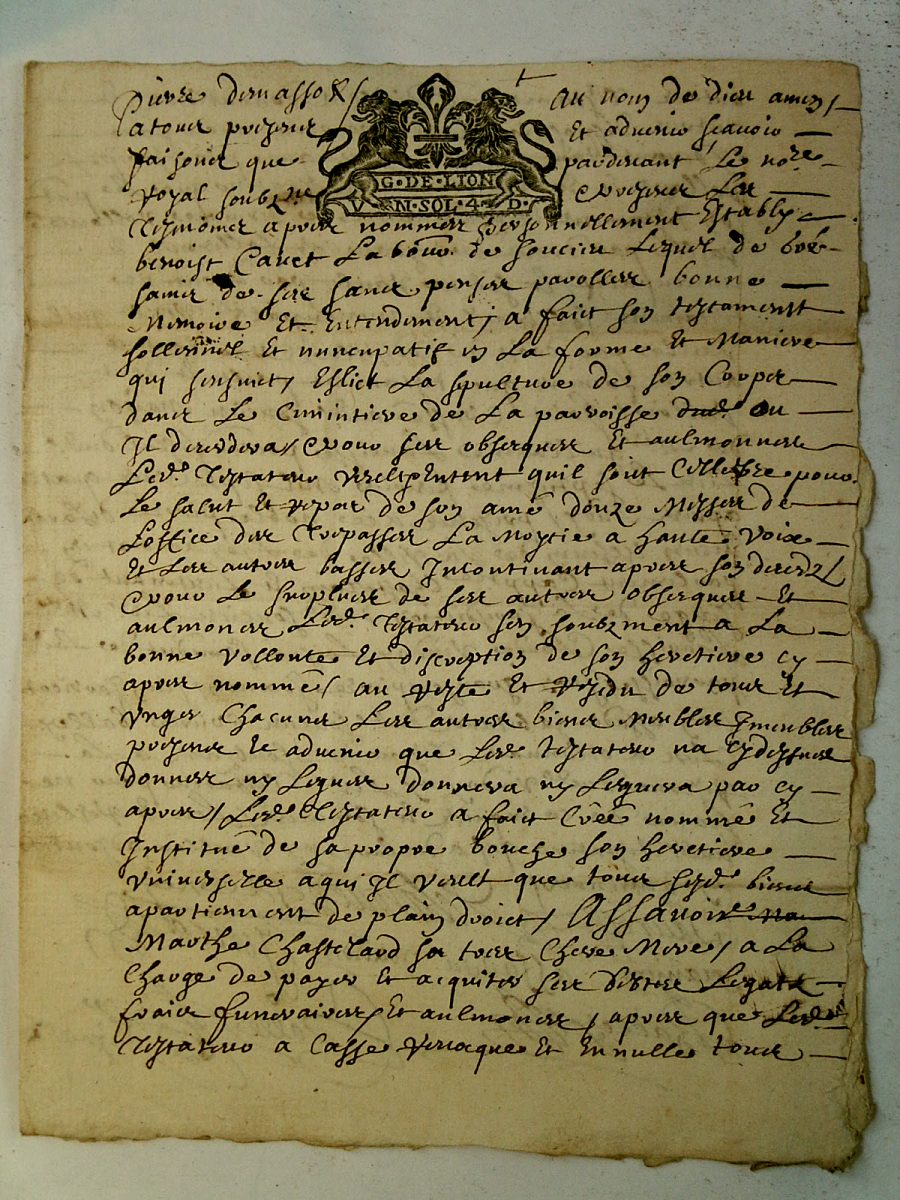 Au nom de dieu amen
a tous presens
Et advenir scavoir
faisons que
pardevant Le nore
Royal soubzne
G · DE · LION
V N · SOL · 4 · D ·
presens Les
Tesmoings apres nommes personnellement Estably
benoist Caret Labour de Lequel de
de ses sancs penser parolles bonne
Memoire Et Entendement, a faict son testament
sollennel Et nuncupatif en La forme Et Maniere
qui sensuict, Eslict La spulture de son Corps
dans Le Cimintiere de La parroisse ou
Il decedera, pour ses obseques Et aulmonnes
Led. Testateur quil soit Cellebre pour
Le salut Et repos de son ame douze Messes de
Loffice des Trepasses La Moytie a haute voix
Et Les autres basses Incontinant apres son deces
pour Le surplus de ses autres obseques Et
aulmones Led. Testateur sen soubzment a La
bonne vollonte Et discreption de son heretiere cy
apres nommé, au reste Et residu de tous Et
ungs Chacuns Les autres biens Meubles Imeubles
presens Et advenir que Led. Testateur na cydessus
donnes ny Legues donnera ny Leguera par cy
apres, Led. Testateur a faict Créé nommé Et
Institué de sa propre bouche son heretiere
universelle a qui Il veult que tous sesd. biens
apartiennent de plain droict, Assavoir
Marthe Chastelard sa tres Chere Mere, a La
Charge de payer Et acquiter ses debtes Legats
frais funeraires, Et aulmones, apres que Led.
Testateur a Casse revoque Et Ennulle tous